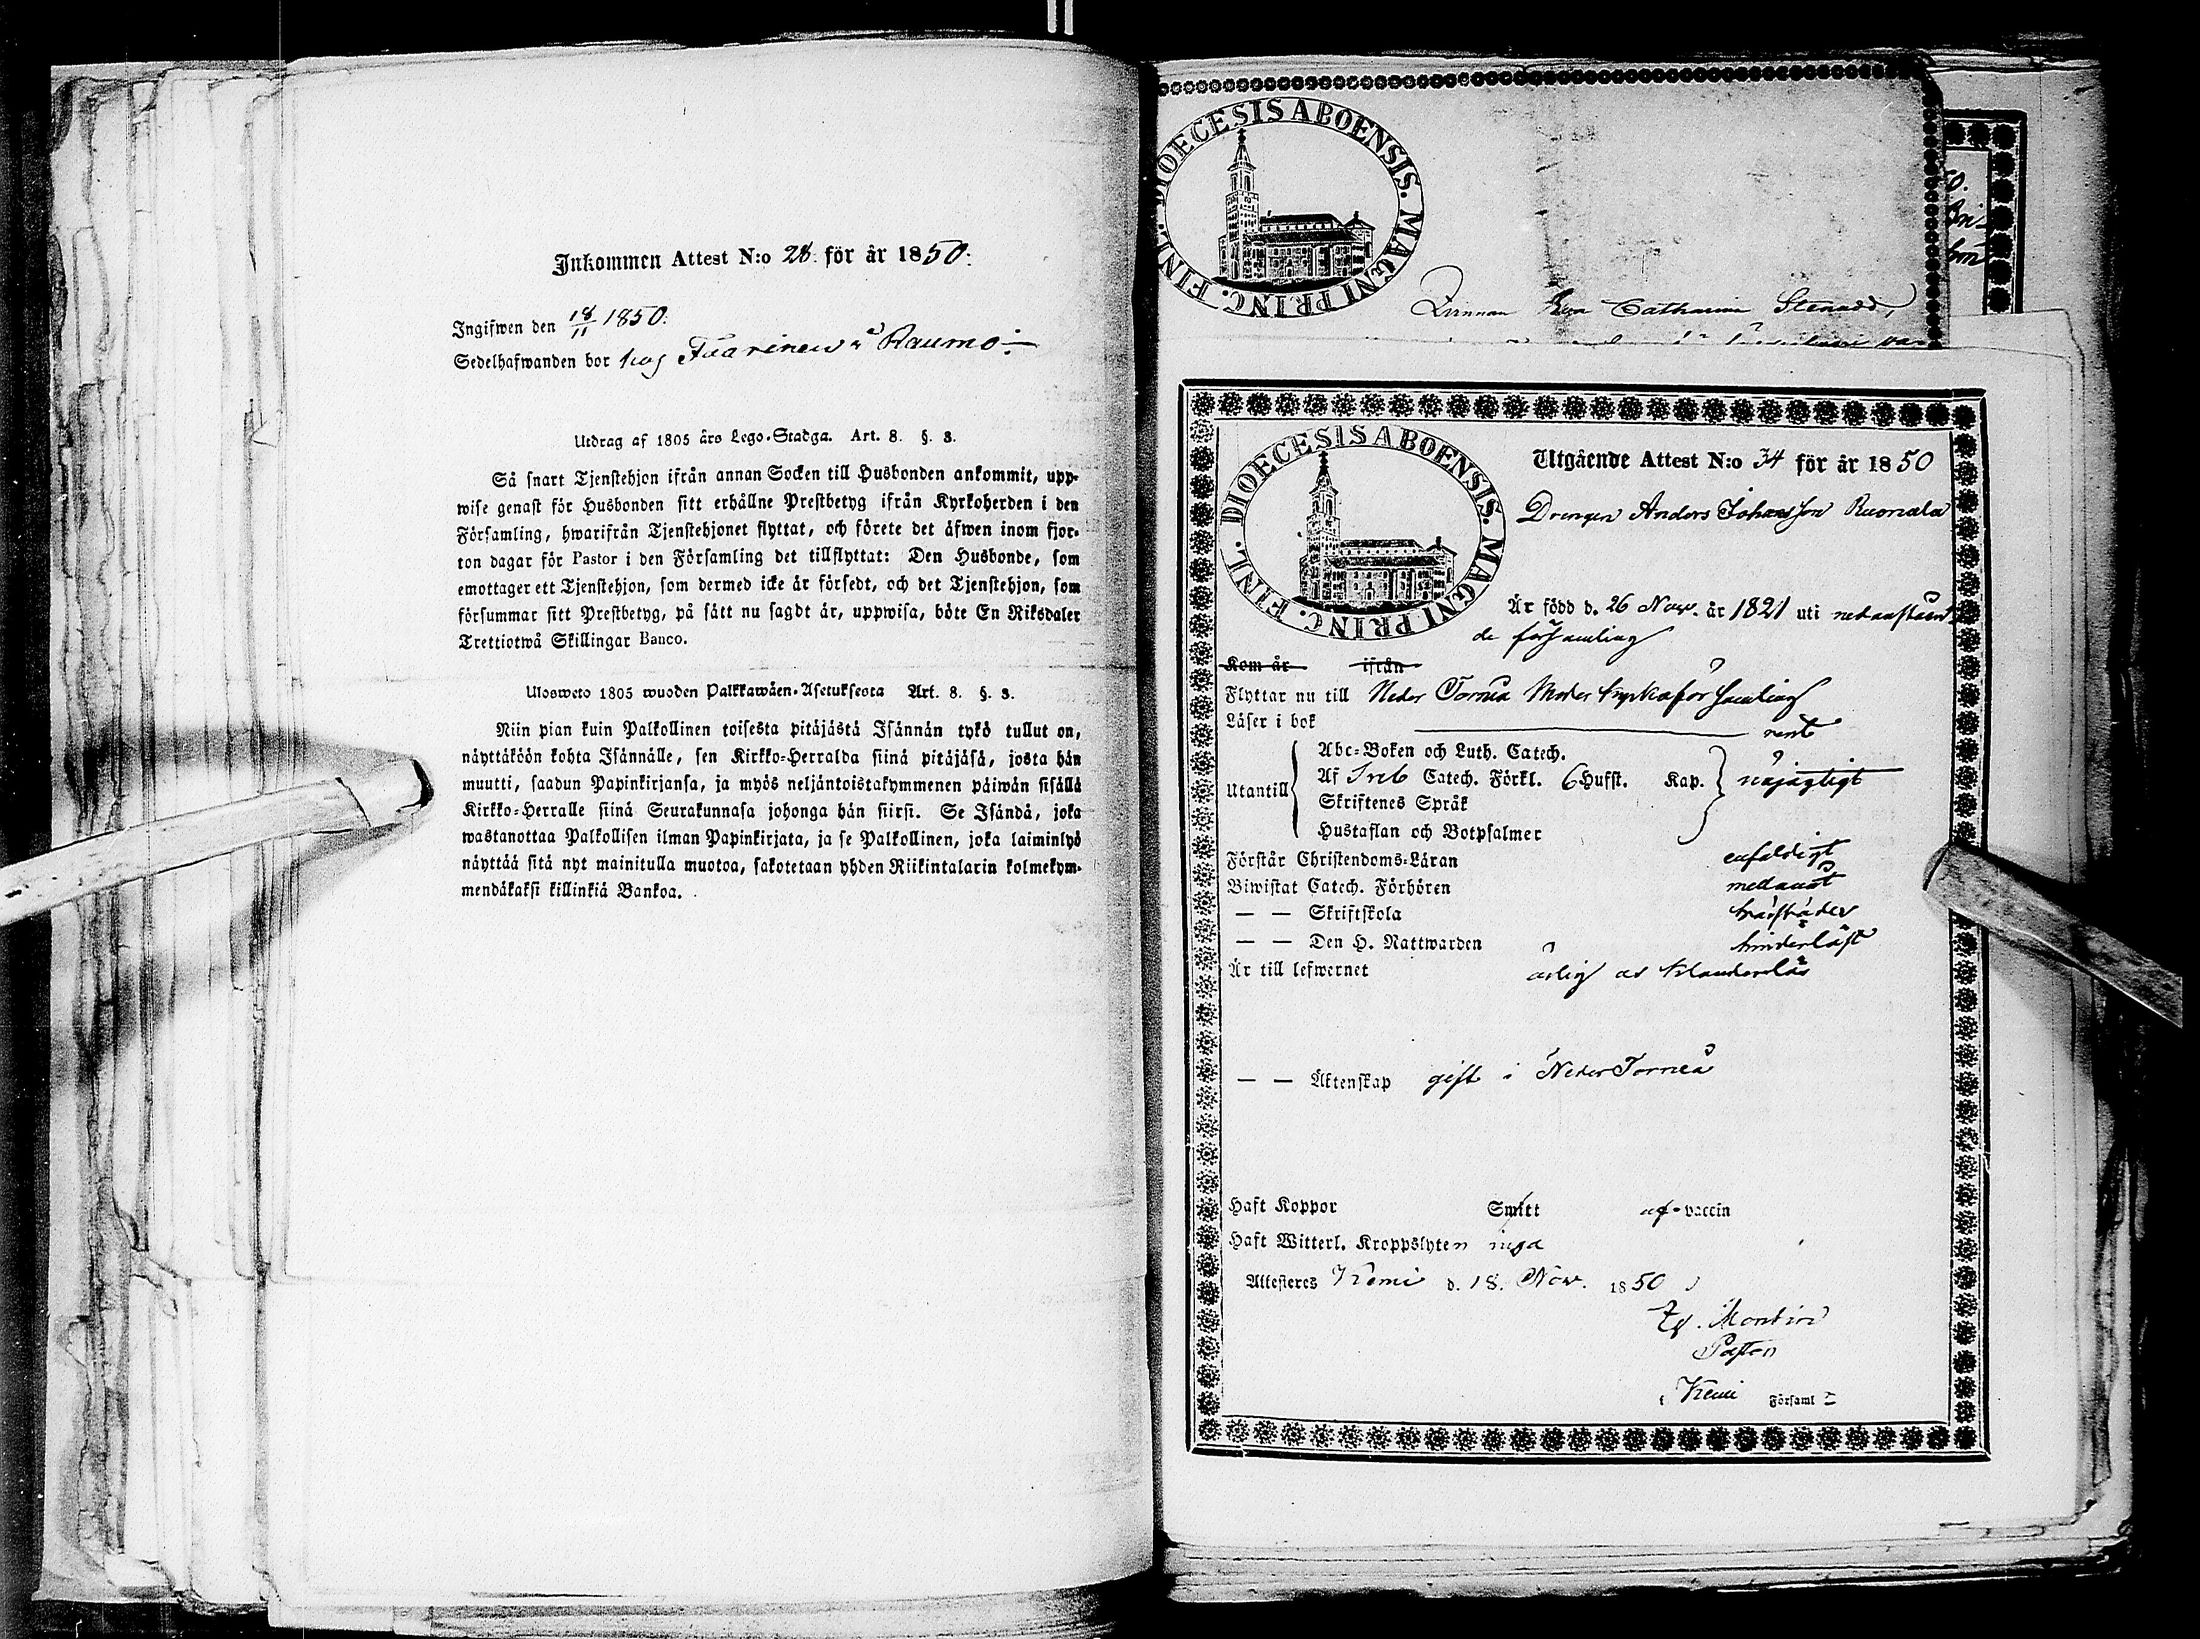 Inkommen Attest N:o 28. för år 1850.
Ingifwen den 18/11 1850.
Sedelhafwanden bor hos å Raumo
Utdrag af 1805 års Lego-Stadga. Art. 8. §. 3.
Så snart Tjenstehjon ifrån annan Socken till Husbonden ankommit, upp-
wise genast för Husbonden sitt erhållne Prestbetyg ifrån Kyrkoherden i den
Församling, hwarifrån Tjenstehjonet flyttat, och förete det äfwen inom fjor-
ton dagar för Pastor i den Församling det tillflyttat: Den Husbonde, som
emottager ett Tjenstehjon, som dermed icke är försedt, och det Tjenstehjon, som
försummar sitt Prestbetyg, på sätt nu sagdt är, uppwisa, böte En Riksdaler
Trettiotwå Skillingar Banco.
Ulosweto 1805 wuoden Palkkawäen-Asetuksesta Art. 8. §. 3.
Niin pian kuin Palkollinen toisesta pitäjästä Isännän tykö tullut on,
näyttäköön kohta Isännälle, sen Kirkko-Herralda siinä pitäjäsä, josta hän
muutti, saadun Papinkirjansa, ja myös neljäntoistakymmenen päiwän sisällä
Kirkko-Herralle siinä Seurakunnasa johonga hän siirsi. Se Isändä, joka
wastanottaa Palkollisen ilman Papinkirjata, ja se Palkollinen, joka laiminlyö
näyttää sitä nyt mainitulla muotoa, sakotetaan yhden Riikintalarin kolmekym-
mendäkaksi killinkiä Bankoa.
FINL. DIOECESIS ABOENSIS. MAGNI PRINC.
Qvinnan Eva Catharina Stenudd,
FINL. DIOECESIS ABOENSIS. MAGNI PRINC.
Utgående Attest N:o 34 för år 1850
Drengen Anders Johansson Ruonala
Är född d. 26 Nov. år 1821 uti nedanståen
de församling
Kom år ifrån
Flyttar nu till Neder Torneå Moder kyrkoförsamling
Läser i bok rent
Utantill
Abc-Boken och Luth. Catech.
Af Sveb Catech. Förkl. 6 Hufst. Kap. nöjagtigt
Skriftenes Språk
Hustaflan och Botpsalmer
Förstår Christendoms-Läran enfaldigt
Biwistat Catech. Förhören medaust
— — Skriftskola
— — Den H. Nattwarden hinderlöst
Är till lefwernet ärlig oc klanderlös
— — Äktenskap gift i Neder Torneå
Haft Koppor Smitt af vaccin
Haft Witterl. Kroppslyten inga
Attesteres Kemi d. 18. Nov. 1850
Montin
Pastor
i Kemi Församl